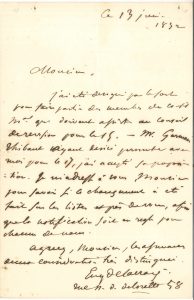 ce 13 juin
1832
Monsieur,
j'ai été désigné par le sort
pour faire partie des membres de la
qui doivent assister au conseil
de revision pour le 15 — M.
Thibaut ayant désiré permuter avec
moi pour le 17, j'ai accepté sa proposi
tion. Je m'adresse à vous Monsieur
pour savoir si le changement a été
fait sur les listes et près de vous, afin
que la notification soit en règle pour
chacun de nous.
agréez, Monsieur, l'assurance
de ma considération très distinguée
Eug Delacroix
rue N. D. de lorette 58